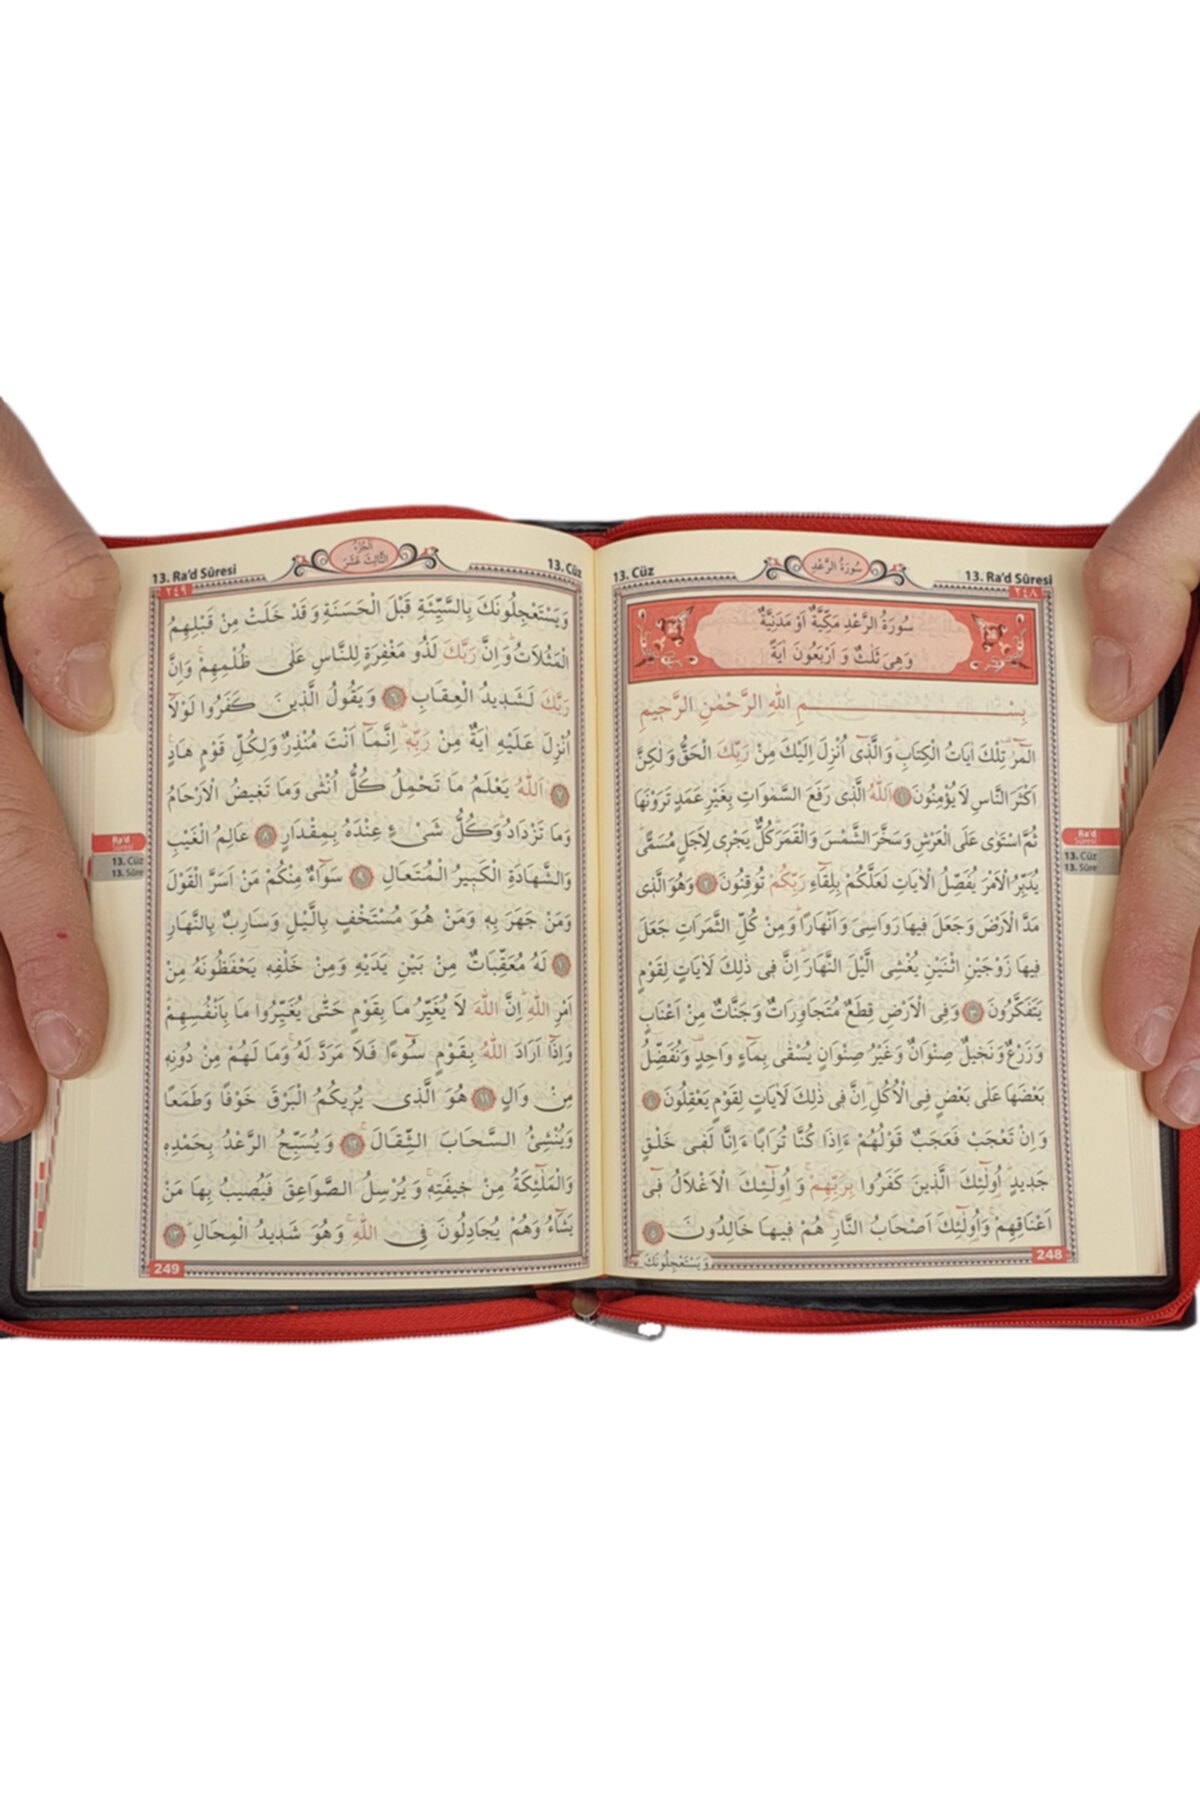 13. Cüz
سُورَةُ الرَّعْدِ
13. Ra'd Sûresi
٢٤٨
سُورَةُ الرَّعْدِ مَكِّيَّةٌ اَوْ مَدَنِيَّةٌ
وَهِىَ ثَلٰثٌ وَ اَرْبَعُونَ اٰيَةً
بِسْمِ اللّٰهِ الرَّحْمٰنِ الرَّحِيمِ
الٓمٓرٰ تِلْكَ اٰيَاتُ الْكِتَابِ وَالَّذٖٓى اُنْزِلَ اِلَيْكَ مِنْ رَبِّكَ الْحَقُّ وَلٰكِنَّ
اَكْثَرَ النَّاسِ لَا يُؤْمِنُونَ ١ اَللّٰهُ الَّذٖى رَفَعَ السَّمٰوَاتِ بِغَيْرِ عَمَدٍ تَرَوْنَهَا
ثُمَّ اسْتَوٰى عَلَى الْعَرْشِ وَسَخَّرَ الشَّمْسَ وَالْقَمَرَ كُلٌّ يَجْرٖى لِاَجَلٍ مُسَمًّى
يُدَبِّرُ الْاَمْرَ يُفَصِّلُ الْاٰيَاتِ لَعَلَّكُمْ بِلِقَٓاءِ رَبِّكُمْ تُوقِنُونَ ٢ وَهُوَ الَّذٖى
مَدَّ الْاَرْضَ وَجَعَلَ فٖيهَا رَوَاسِىَ وَاَنْهَارًا وَمِنْ كُلِّ الثَّمَرَاتِ جَعَلَ
فٖيهَا زَوْجَيْنِ اثْنَيْنِ يُغْشِى الَّيْلَ النَّهَارَ اِنَّ فٖى ذٰلِكَ لَاٰيَاتٍ لِقَوْمٍ
يَتَفَكَّرُونَ ٣ وَفِى الْاَرْضِ قِطَعٌ مُتَجَاوِرَاتٌ وَجَنَّاتٌ مِنْ اَعْنَابٍ
وَزَرْعٌ وَنَخٖيلٌ صِنْوَانٌ وَغَيْرُ صِنْوَانٍ يُسْقٰى بِمَٓاءٍ وَاحِدٍ وَنُفَضِّلُ
بَعْضَهَا عَلٰى بَعْضٍ فِى الْاُكُلِ اِنَّ فٖى ذٰلِكَ لَاٰيَاتٍ لِقَوْمٍ يَعْقِلُونَ ٤
وَاِنْ تَعْجَبْ فَعَجَبٌ قَوْلُهُمْ ءَاِذَا كُنَّا تُرَابًا ءَاِنَّا لَفٖى خَلْقٍ
جَدٖيدٍ اُولٰٓئِكَ الَّذٖينَ كَفَرُوا بِرَبِّهِمْ وَ اُولٰٓئِكَ الْاَغْلَالُ فٖٓى
اَعْنَاقِهِمْ وَاُولٰٓئِكَ اَصْحَابُ النَّارِ هُمْ فٖيهَا خَالِدُونَ ٥
وَيَسْتَعْجِلُونَكَ
248
Ra'd
Sûresi
13. Cüz
13. Sûre
13. Ra'd Sûresi
اَلْجُزْءُ
الثَّالِثَ عَشَرَ
13. Cüz
٢٤٩
وَيَسْتَعْجِلُونَكَ بِالسَّيِّئَةِ قَبْلَ الْحَسَنَةِ وَقَدْ خَلَتْ مِنْ قَبْلِهِمُ
الْمَثُلَاتُ وَاِنَّ رَبَّكَ لَذُو مَغْفِرَةٍ لِلنَّاسِ عَلٰى ظُلْمِهِمْ وَاِنَّ
رَبَّكَ لَشَدٖيدُ الْعِقَابِ ٦ وَيَقُولُ الَّذٖينَ كَفَرُوا لَوْلَٓا
اُنْزِلَ عَلَيْهِ اٰيَةٌ مِنْ رَبِّهٖ اِنَّمَٓا اَنْتَ مُنْذِرٌ وَلِكُلِّ قَوْمٍ هَادٍ
٧ اَللّٰهُ يَعْلَمُ مَا تَحْمِلُ كُلُّ اُنْثٰى وَمَا تَغٖيضُ الْاَرْحَامُ
وَمَا تَزْدَادُ وَكُلُّ شَىْءٍ عِنْدَهُ بِمِقْدَارٍ ٨ عَالِمُ الْغَيْبِ
وَالشَّهَادَةِ الْكَبٖيرُ الْمُتَعَالِ ٩ سَوَٓاءٌ مِنْكُمْ مَنْ اَسَرَّ الْقَوْلَ
وَمَنْ جَهَرَ بِهٖ وَمَنْ هُوَ مُسْتَخْفٍ بِالَّيْلِ وَسَارِبٌ بِالنَّهَارِ
١٠ لَهُ مُعَقِّبَاتٌ مِنْ بَيْنِ يَدَيْهِ وَمِنْ خَلْفِهٖ يَحْفَظُونَهُ مِنْ
اَمْرِ اللّٰهِ اِنَّ اللّٰهَ لَا يُغَيِّرُ مَا بِقَوْمٍ حَتّٰى يُغَيِّرُوا مَا بِاَنْفُسِهِمْ
وَاِذَٓا اَرَادَ اللّٰهُ بِقَوْمٍ سُٓوءًا فَلَا مَرَدَّ لَهُ وَمَا لَهُمْ مِنْ دُونِهٖ
مِنْ وَالٍ ١١ هُوَ الَّذٖى يُرٖيكُمُ الْبَرْقَ خَوْفًا وَطَمَعًا
وَيُنْشِئُ السَّحَابَ الثِّقَالَ ١٢ وَيُسَبِّحُ الرَّعْدُ بِحَمْدِهٖ
وَالْمَلٰٓئِكَةُ مِنْ خٖيفَتِهٖ وَيُرْسِلُ الصَّوَاعِقَ فَيُصٖيبُ بِهَا مَنْ
يَشَٓاءُ وَهُمْ يُجَادِلُونَ فِى اللّٰهِ وَهُوَ شَدٖيدُ الْمِحَالِ ١٣
249
Ra'd
Sûresi
13. Cüz
13. Sûre